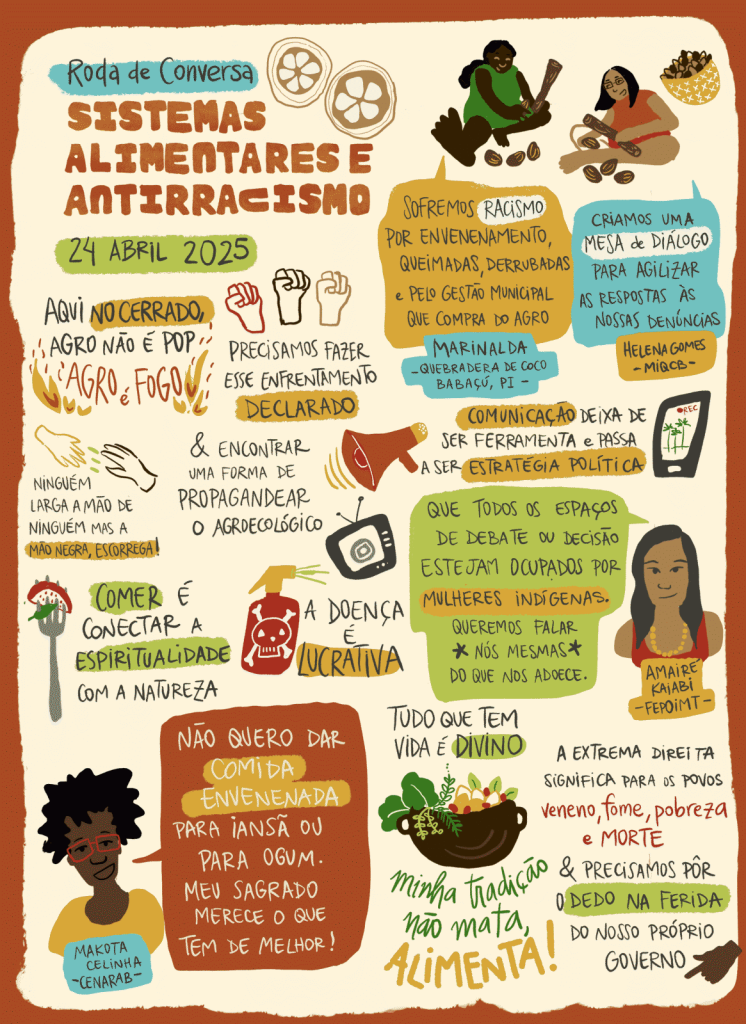 Roda de Conversa
SISTEMAS
ALIMENTARES E
ANTIRRACISMO
24 ABRIL 2025
SOFREMOS RACISMO
POR ENVENENAMENTO,
QUEIMADAS, DERRUBADAS
e PELO GESTÃO MUNICIPAL
QUE COMPRA DO AGRO
MARINALDA
-QUEBRADEIRA DE COCO
BABAÇÚ, PI -
CRIAMOS UMA
MESA de DIÁLOGO
PARA AGILIZAR
AS RESPOSTAS ÀS
NOSSAS DENÚNCIAS
HELENA GOMES
-MIQCB-
AQUI NO CERRADO,
AGRO NÃO É POP
AGRO é FOGO
PRECISAMOS FAZER
ESSE ENFRENTAMENTO
DECLARADO
COMUNICAÇÃO DEIXA DE
SER FERRAMENTA e PASSA
A SER ESTRATÉGIA POLÍTICA
REC
NINGUÉM
LARGA A MÃO DE
NINGUÉM MAS A
MÃO NEGRA, ESCORREGA!
& ENCONTRAR
UMA FORMA DE
PROPAGANDEAR
O AGROECOLÓGICO
QUE TODOS OS ESPAÇOS
DE DEBATE OU DECISÃO
ESTEJAM OCUPADOS POR
MULHERES INDÍGENAS.
QUEREMOS FALAR
*NÓS MESMAS*
DO QUE NOS ADOECE.
AMAIRÉ
KAIABI
-FEPOIMT-
COMER É
CONECTAR A
ESPIRITUALIDADE
COM A NATUREZA
A DOENÇA
É
LUCRATIVA
NÃO QUERO DAR
COMIDA
ENVENENADA
PARA IANSÃ OU
PARA OGUM.
MEU SAGRADO
MERECE O QUE
TEM DE MELHOR!
MAKOTA
CELINHA
-CENARAB-
TUDO QUE TEM
VIDA É DIVINO
minha tradição
não mata,
ALIMENTA!
A EXTREMA DIREITA
SIGNIFICA PARA OS POVOS
veneno, fome, pobreza
e MORTE
& PRECISAMOS PÔR
O DEDO NA FERIDA
DO NOSSO PRÓPRIO
GOVERNO